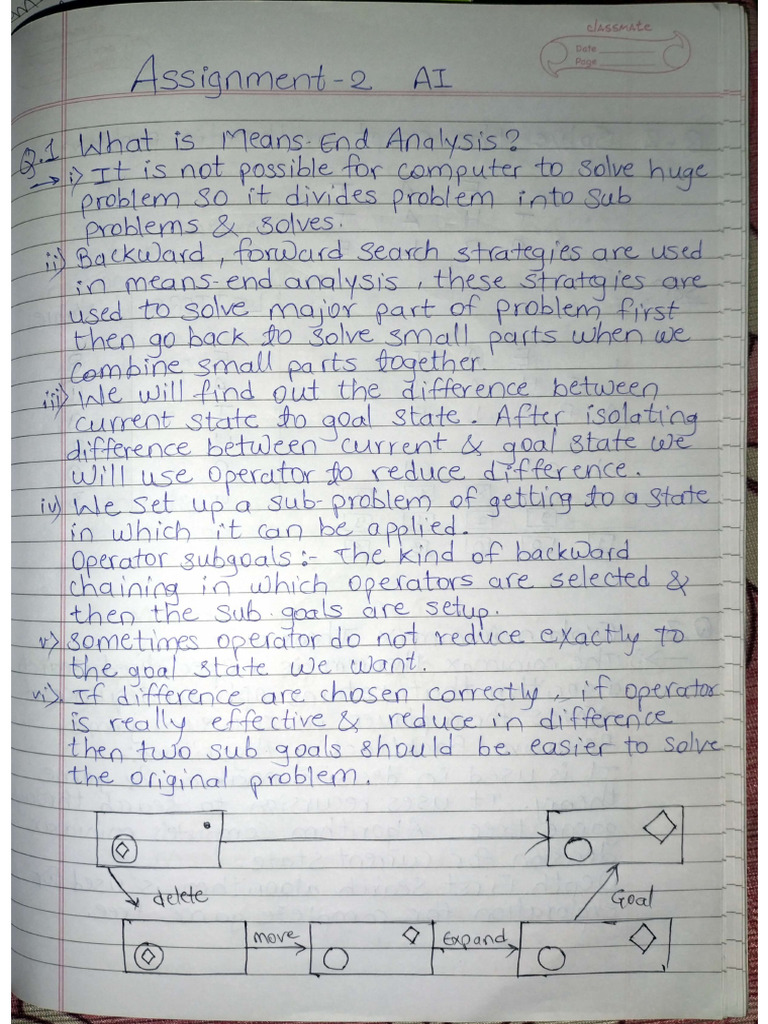 classmate
Date
Page
Assignment-2 AI
Q.1 What is Means-End Analysis?
→ i) It is not possible for computer to solve huge
problem so it divides problem into sub
problems & solves.
ii) Backward, forward search strategies are used
in means-end analysis, these strategies are
used to solve major part of problem first
then go back to solve small parts when we
combine small parts together.
iii) We will find out the difference between
current state to goal state. After isolating
difference between current & goal state we
will use operator to reduce difference.
iv) We set up a sub-problem of getting to a state
in which it can be applied.
Operator subgoals:- The kind of backward
chaining in which operators are selected &
then the sub-goals are setup.
v) Sometimes operator do not reduce exactly to
the goal state we want.
vi) If difference are chosen correctly, if operator
is really effective & reduce in difference
then two sub goals should be easier to solve
the original problem.
delete
Goal
move
Expand